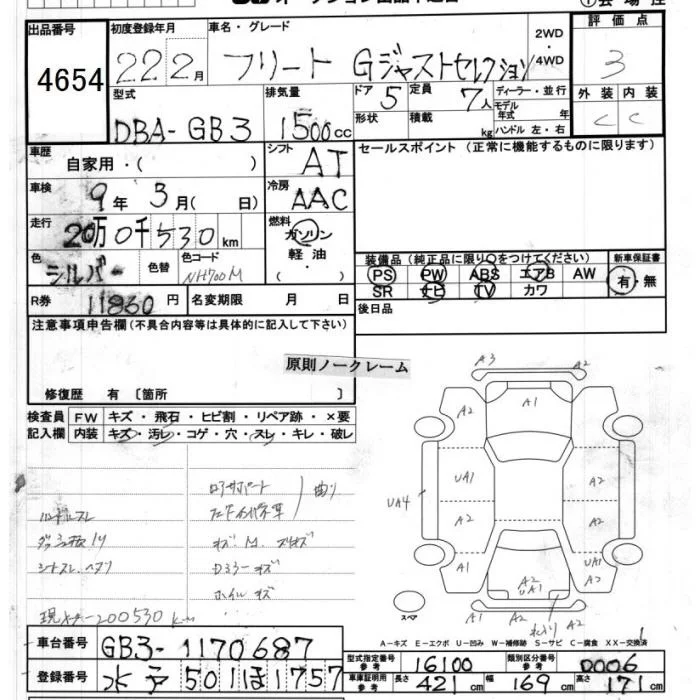 出品番号 初度登録年月 車名・グレード 2WD 評価点
4654 22年2月 フリート Gジャストセレクション ・4WD 3
型式 排気量 ドア 定員 ディーラー・並行 外装 内装
DBA-GB3 1500cc 5 7人 モデル年式 年 C C
形状 積載 kg ハンドル 左・右
車歴 自家用・( ) シフト AT セールスポイント (正常に機能するものに限ります)
車検 9年3月( 日) 冷房 AAC
走行 20万0千530km 燃料 ガソリン
軽油
・
色 シルバー 色替 色コード NH700M
装備品 (純正品に限り○をつけてください) 新車保証書
PS PW ABS エアB AW 有・無
SR ナビ TV カワ
R券 11860円 名変期限 月 日 後日品
注意事項申告欄 (不具合内容等は具体的に記入して下さい)
原則ノークレーム
修復歴 有 〔箇所 〕
検査員 FW キズ・飛石・ヒビ割・リペア跡・×要
記入欄 内装 キズ・汚レ・コゲ・穴・スレ・キレ・破レ
ロアサポート
曲り
ハンドルスレ
シートスレ
Dミラーキズ
ホイルキズ
現メーター200530km
A3 A2
A2 A1 A2
UA1 A2
UA4
A2 A2
A1 A2 UA1 UA2
A2 A2
スペア
A-キズ E-エクボ U-凹み W-補修跡 S-サビ C-腐食 XX-交換済
車台番号 GB3-1170687
型式指定番号 参考 16100 類別区分番号 参考 0006
登録番号 水戸 501 ほ 1757
車庫証明用 参考 長さ 421cm 幅 169cm 高さ 171cm